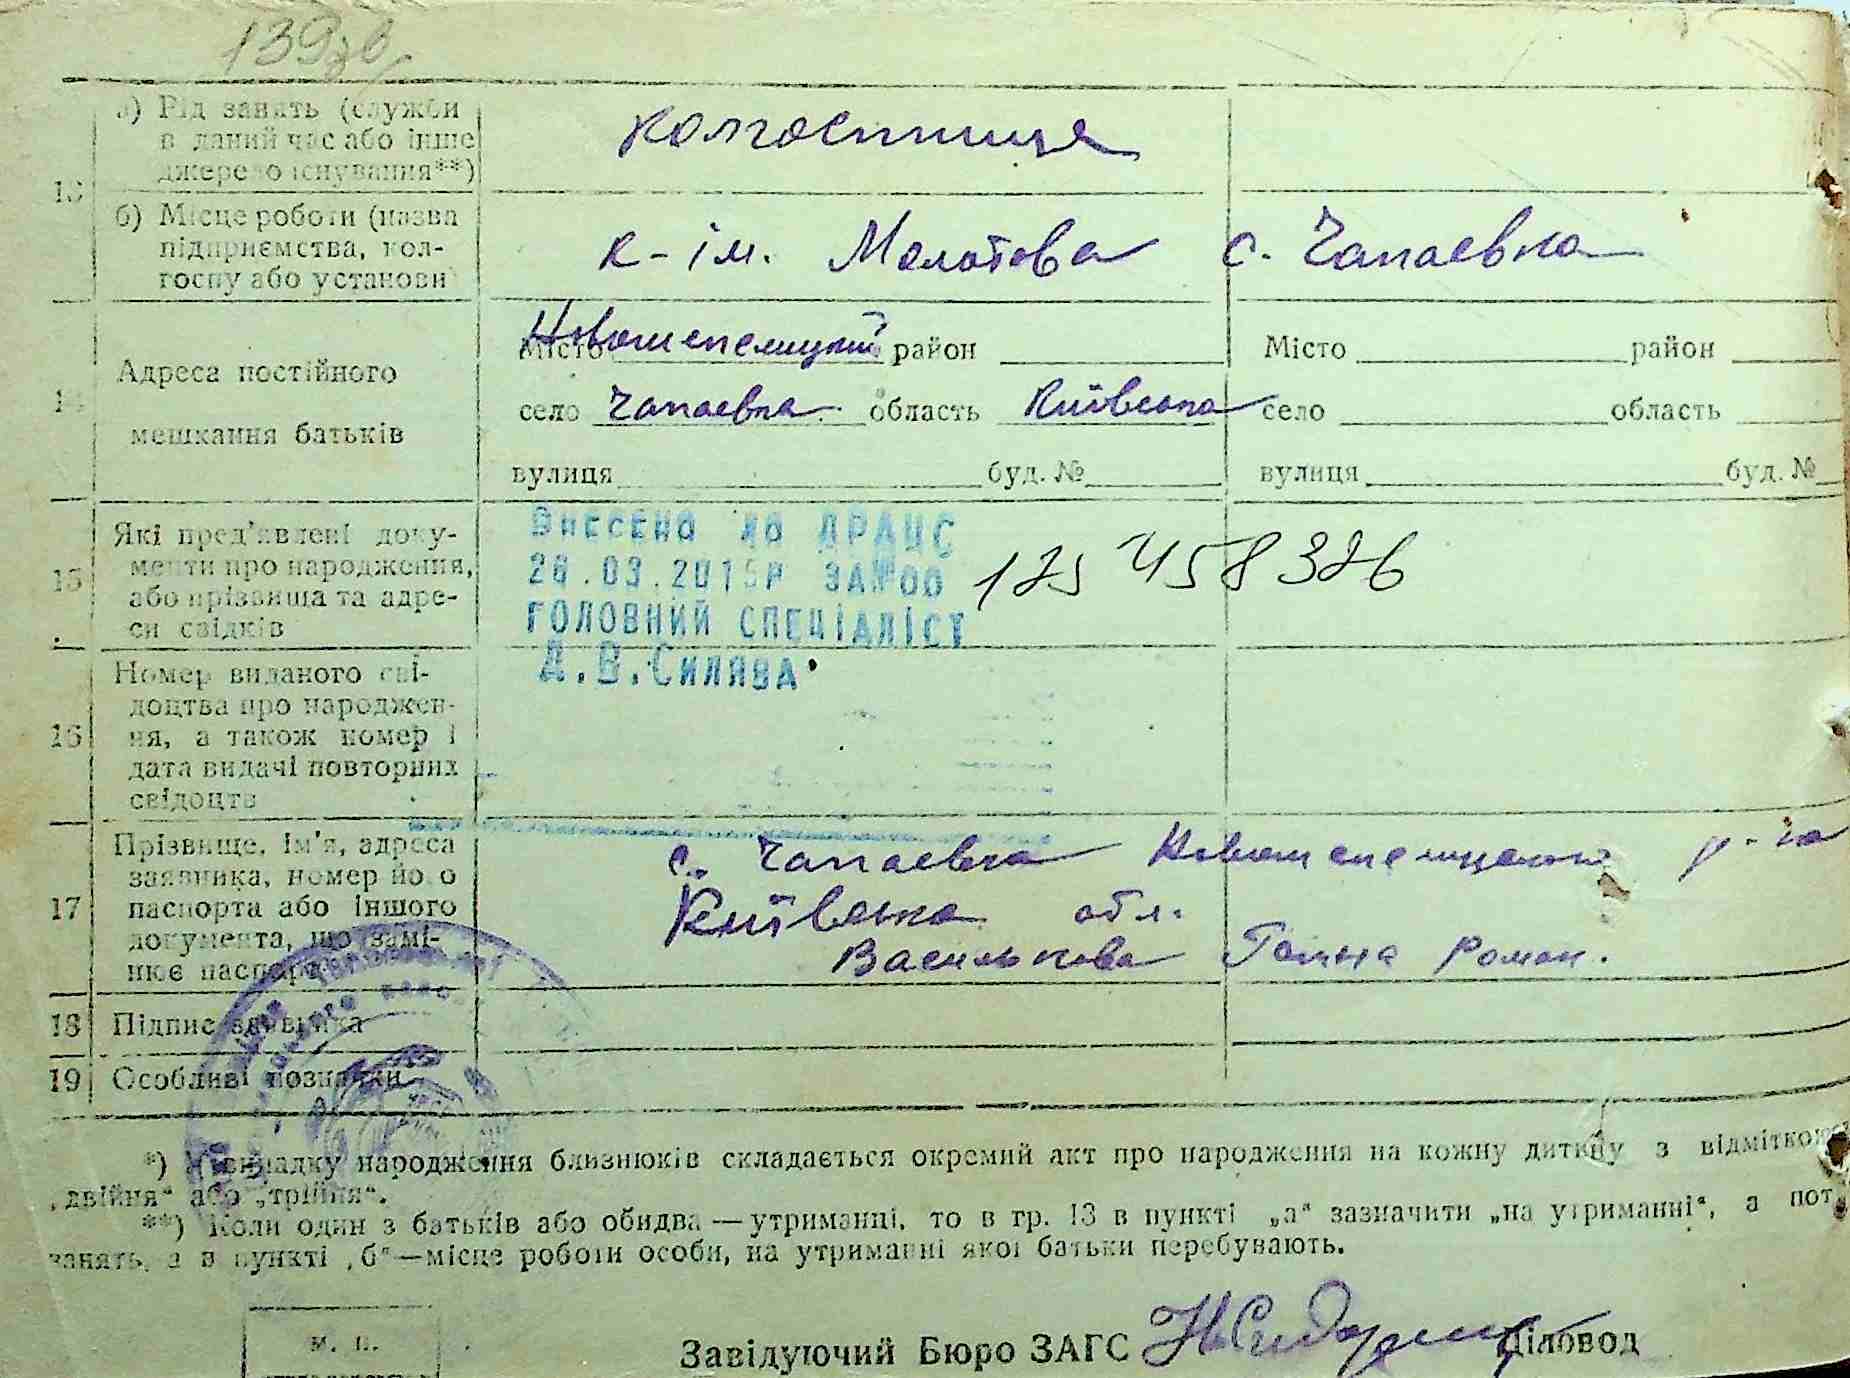 139зв
13
а) Рід занять (служби
в даний час або інше
джерело існування**)
колгоспниця
б) Місце роботи (назва
підприємства, кол-
госпу або установи
к-ім. Молотова с. Чапаевка
14
Адреса постійного
мешкання батьків
Місто Новошепелицький район
село Чапаевка область Київська
вулиця буд. №
Місто район
село область
вулиця буд. №
15
Які пред'явлені доку-
менти про народження,
або прізвища та адре-
си свідків
ВНЕСЕНО ДО ДРАЦС
26.03.2015Р ЗА №00
ГОЛОВНИЙ СПЕЦІАЛІСТ
Д.В.СИЛЯВА
125 458 326
16
Номер виданого сві-
доцтва про народжен-
ня, а також номер і
дата видачі повторних
свідоцтв
17
Прізвище, ім'я, адреса
заявника, номер його
паспорта або іншого
документа, що замі-
нює паспорт
с. Чапаевка Новошепелицького р-на
Київська обл.
Василькова Ганна Роман.
18 Підпис заявника
19 Особливі позначки
*) У випадку народження близнюків складається окремий акт про народження на кожну дитину з відміткою
„двійня“ або „трійня“.
**) Коли один з батьків або обидва — утриманці, то в гр. 13 в пункті „а“ зазначити „на утриманні“, а пот
занять, а в пункті „б“ — місце роботи особи, на утриманні якої батьки перебувають.
М. П.
Завідуючий Бюро ЗАГС
Діловод